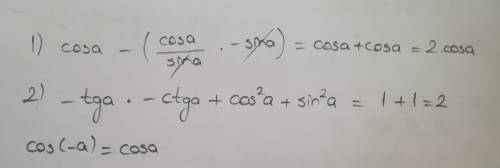 1) cosa - (cosa/sina · -sina) = cosa + cosa = 2 cosa
2) -tga · -ctga + cos²a + sin²a = 1 + 1 = 2
cos(-a) = cosa